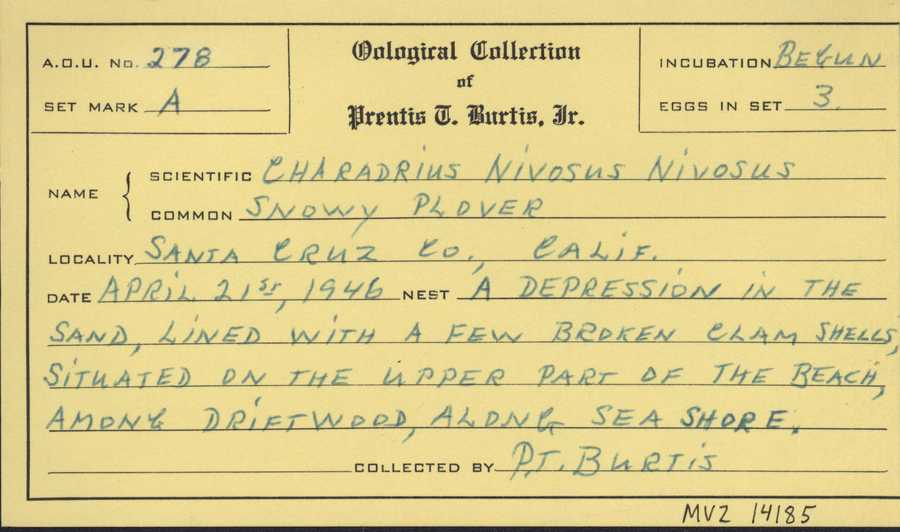 A.O.U. No. 278
SET MARK A
Oological Collection
of
Prentis T. Burtis, Jr.
INCUBATION BEGUN
EGGS IN SET 3.
NAME { SCIENTIFIC CHARADRIUS NIVOSUS NIVOSUS
COMMON SNOWY PLOVER
LOCALITY SANTA CRUZ CO., CALIF.
DATE APRIL 21ST, 1946 NEST A DEPRESSION IN THE
SAND, LINED WITH A FEW BROKEN CLAM SHELLS,
SITUATED ON THE UPPER PART OF THE BEACH,
AMONG DRIFTWOOD, ALONG SEA SHORE.
COLLECTED BY P.T. BURTIS
MVZ 14185